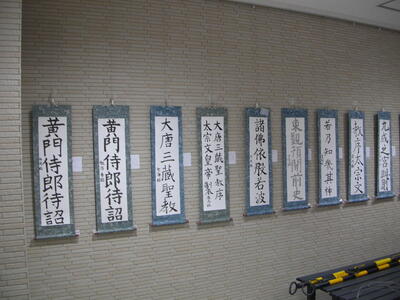 黄門侍郎待詔
黄門侍郎待詔
大唐三藏聖教
大唐三藏聖教序
太宗文皇帝製
諸佛依般若波
東觀預聞前史
若乃知幾其神
教序太宗文
九成之宮此則